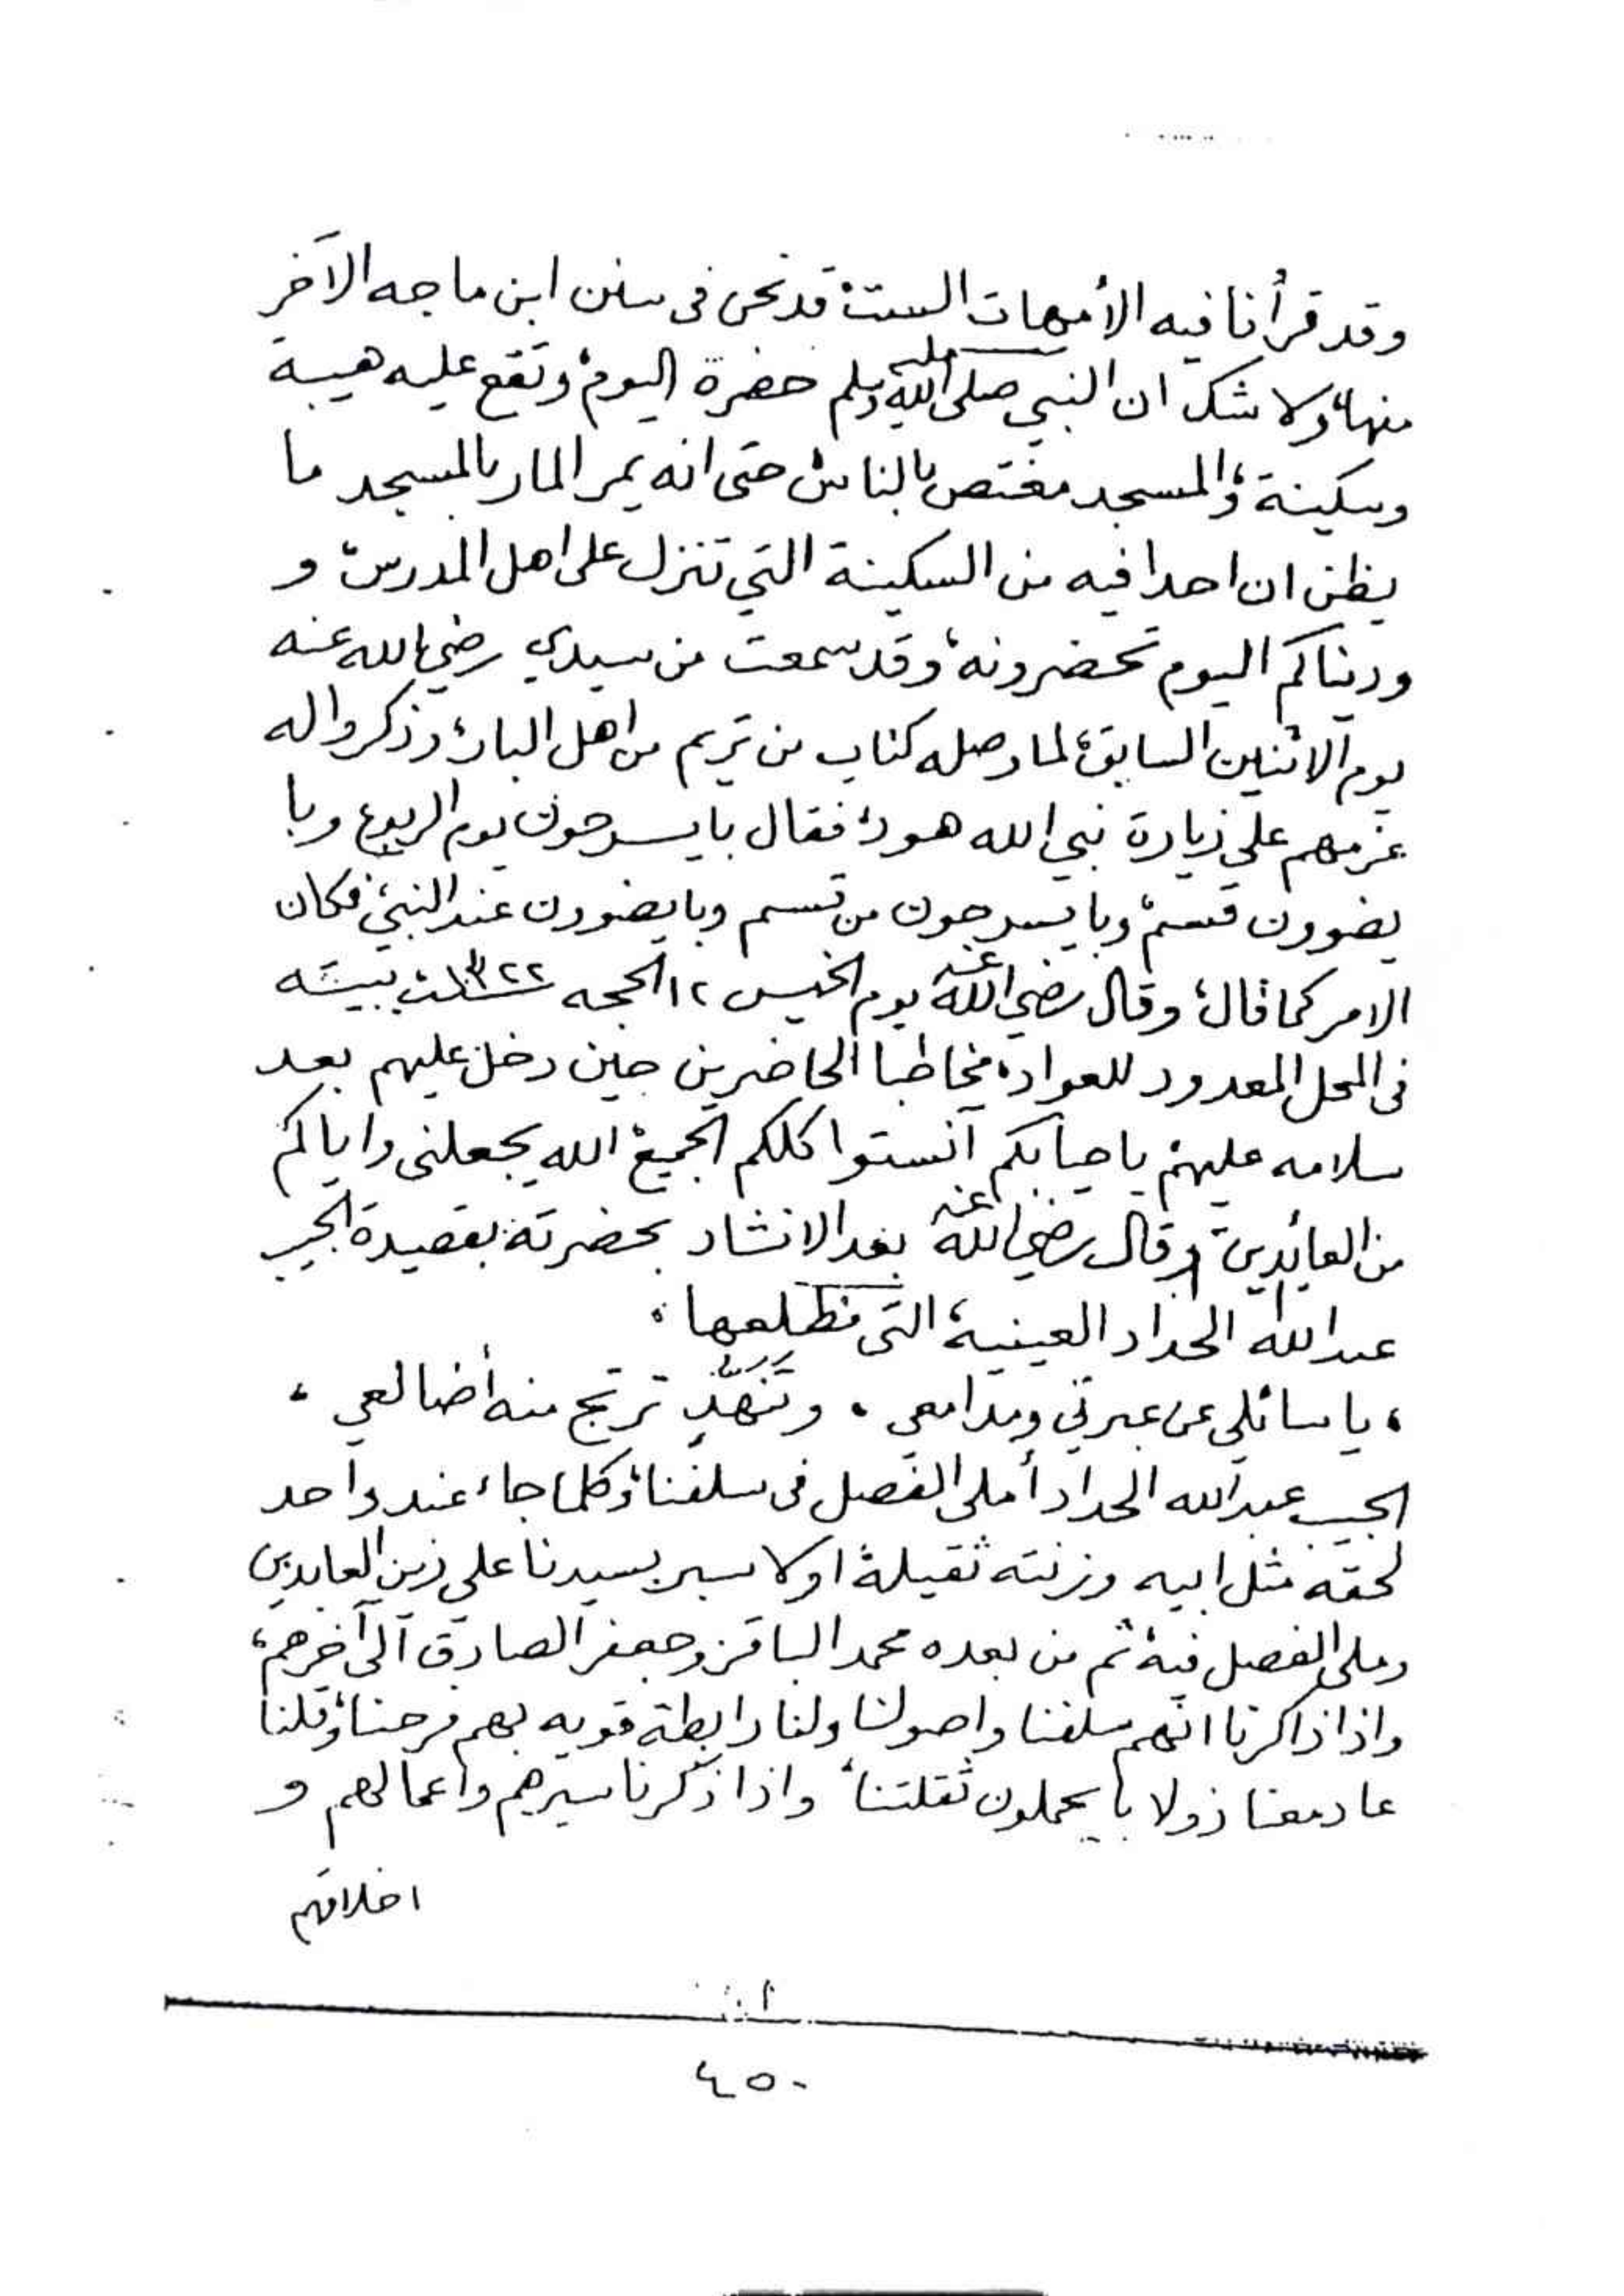 وقد قرأنا فيه الأمهات الست، قد نحن فى سنن ابن ماجه الآخر
منها، ولا شك ان النبي صلى الله عليه وسلم حضرة اليوم، وتقع عليه هيبة
وسكينة، والمسجد مغتص بالناس، حتى انه يمر المار بالمسجد ما
يظن ان احدا فيه من السكينة التي تنزل على اهل المدرس، و
ودنياكم اليوم تحضرونه، وقد سمعت من سيدي رضي الله عنه
يوم الاثنين السابق، لما وصله كتاب من تريم من اهل البلد، وذكروا له
عزمهم على زيارة نبي الله هود، فقال بايسرحون يوم الربوع وبا
يضوون قسم، وبايسرحون من قسم وبايضوون عند النبي، فكان
الامر كما قال، وقال رضي الله عنه يوم الخميس ١٢ الحجه سنة ١٣٢٢ ببيته
فى المحل المعدود للعواد، مخاطبا الحاضرين حين دخل عليهم بعد
سلامه عليهم، ياحيابكم آنستوا كلكم الجميع، الله يجعلنى واياكم
من العائدين، وقال رضي الله عنه بعد الانشاد بحضرته بقصيدة الحبيب
عبد الله الحداد العينية، التى مطلعها،
، يا سائلي عن عبرتي ومدامعى ، وتنهّد ترتج منه أضالعي ،
الحبيب عبد الله الحداد أملى الفصل فى سلفنا، وكلما جاء عند واحد
لحقه مثل ابيه وزنته ثقيلة، اولا سير بسيدنا على زين العابدين
وملى الفصل فيه، ثم من بعده محمد الباقر، وجعفر الصادق الى آخرهم،
واذا ذاكرنا انهم سلفنا واصولنا ولنا رابطة قويه بهم فرحنا، وقلنا
عاد معنا ذولا با يحملون ثقلتنا، واذا ذكرنا سيرهم واعمالهم و
اخلاقهم
٤٥٠